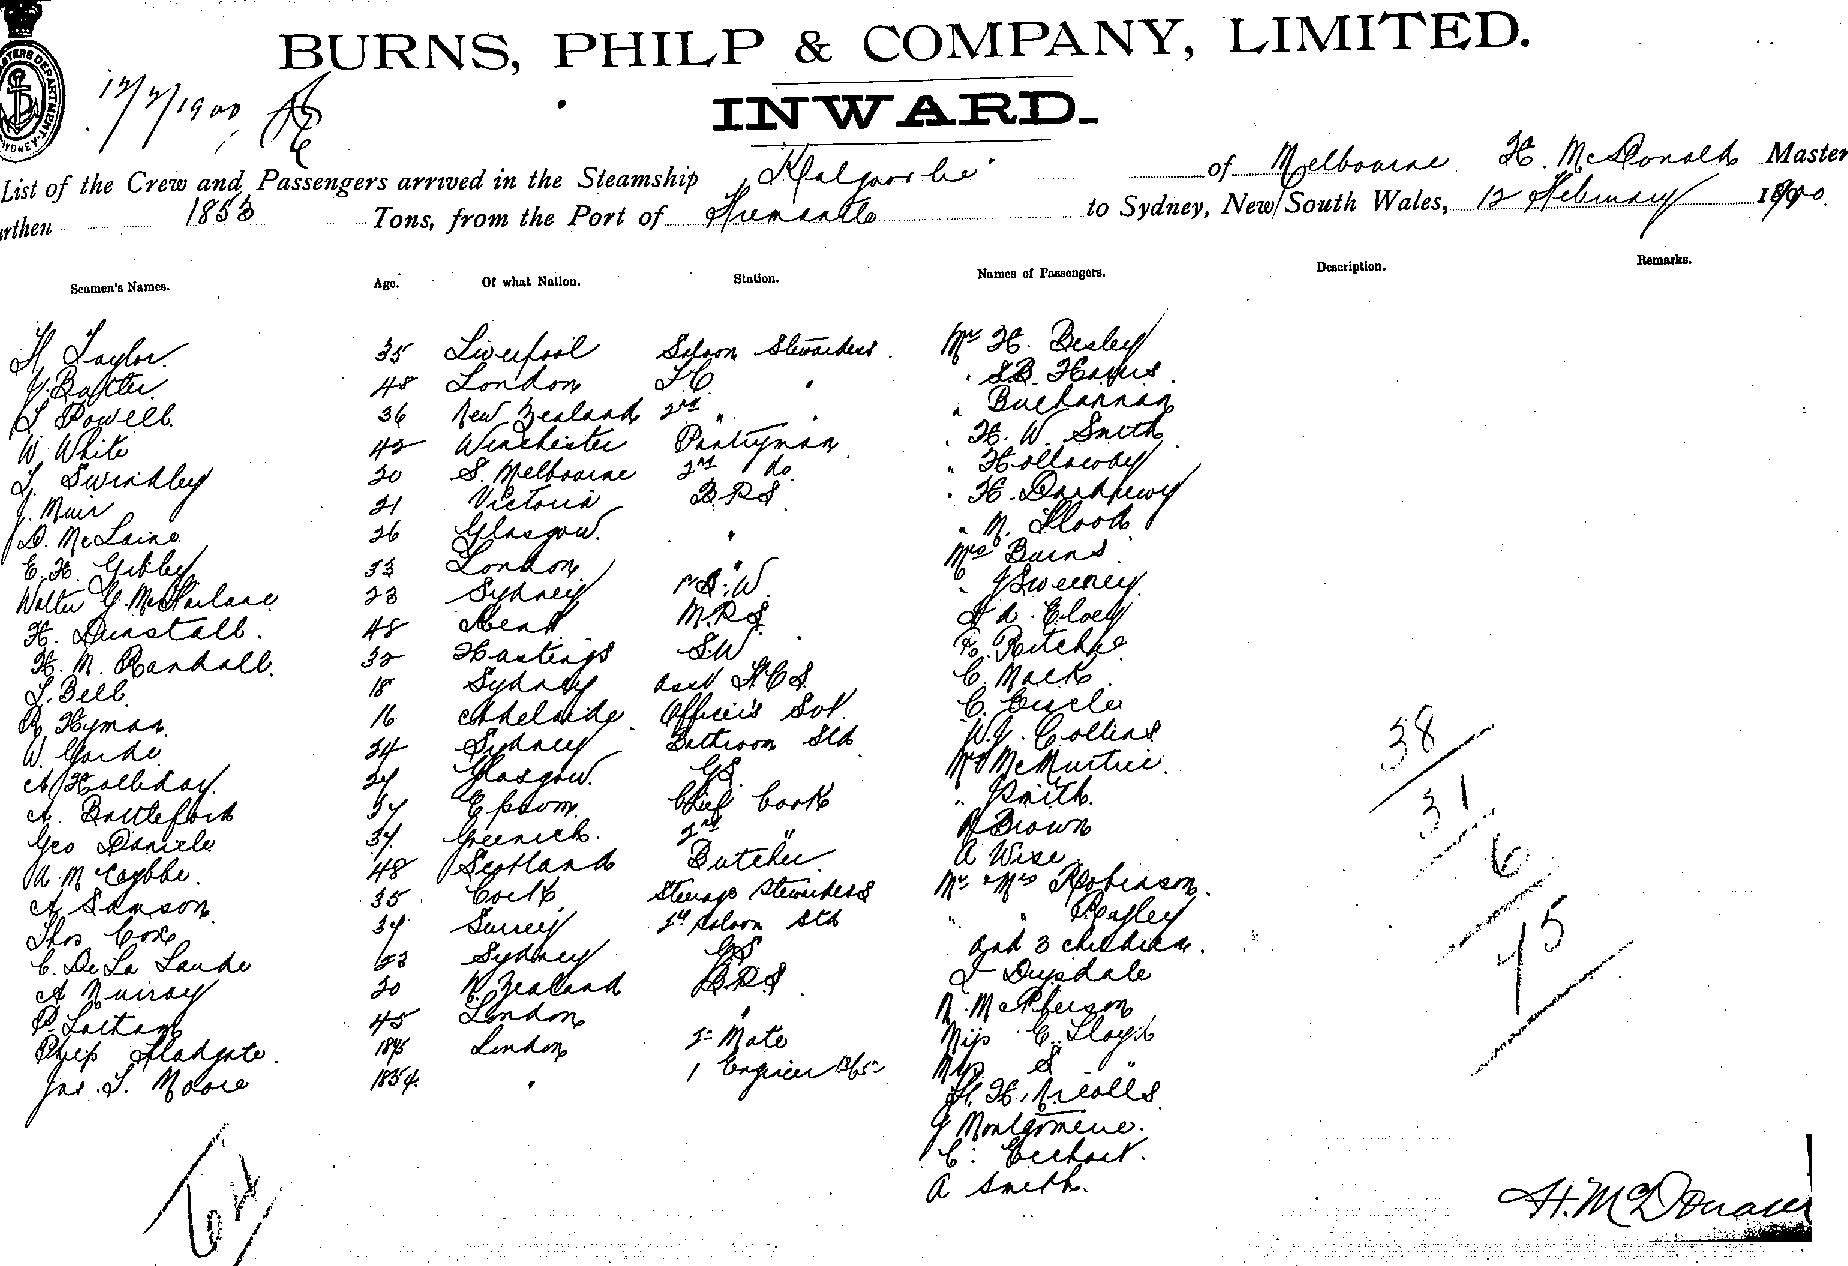 BURNS, PHILP & COMPANY, LIMITED.
12/2/1900
INWARD.
List of the Crew and Passengers arrived in the Steamship Kalgoorlie of Melbourne H. McDonald Master
rthen 1853 Tons, from the Port of Fremantle to Sydney, New South Wales, 12 February 1900
Seamen's Names. Age. Of what Nation. Station. Names of Passengers. Description. Remarks.
H Taylor 35 Liverpool Saloon Stewardess. Mr H. Besley
J. Baxter 48 London " S.B. Harris
L Powell 36 New Zealand 2nd " " " Buchannan
W White 42 Winchester Pantryman " H. W. Smith
Swindley 20 S. Melbourne 2nd do " Holloway
J. Muir 21 Victoria B.R.S " H.
D. McLaine 26 Glasgow. " " N. Flood
E. H. Gibley 33 London " Mrs Burns
Walter G. McFarlane 23 Sydney " J Sweeney
H. Dunstall. 48 Kent M.R.S
H. M. Randall. 32 Hastings S.W Ritchie
L. Bell 18 Sydney C. Mack
R Hyman 16 Adelaide Officers Svt. C.
W. 24 Sydney Bathroom Std W.J. Collins
A Holliday. 24 Glasgow. G.S. McMurtrie.
A. Battleford 34 Epsom. Chief Cook " Smith.
Geo Daniels 34 Greenich. 2nd " Brown
A. McCabbe. 48 Scotland Butcher A Wise
A Samson 35 Cork Steerage Stewardess Mr & Mrs Robinson.
Thos Cox 34 Surrey Saloon Std " " Bagley
C. De La Lande 23 Sydney G.S and 3 children.
A Murray 20 N. Zealand B.R.S Drysdale
P. Latham 45 London " N. McPherson
Philip Fladgate. 1875 London 2nd Mate Miss C. Lloyd
Jas. L. Moore 1854 " 1 Engineer Miss S "
H. H. Nicolls
J Montgomerie.
C.
A Smith.
38
31
6
75
62
H. McDonald